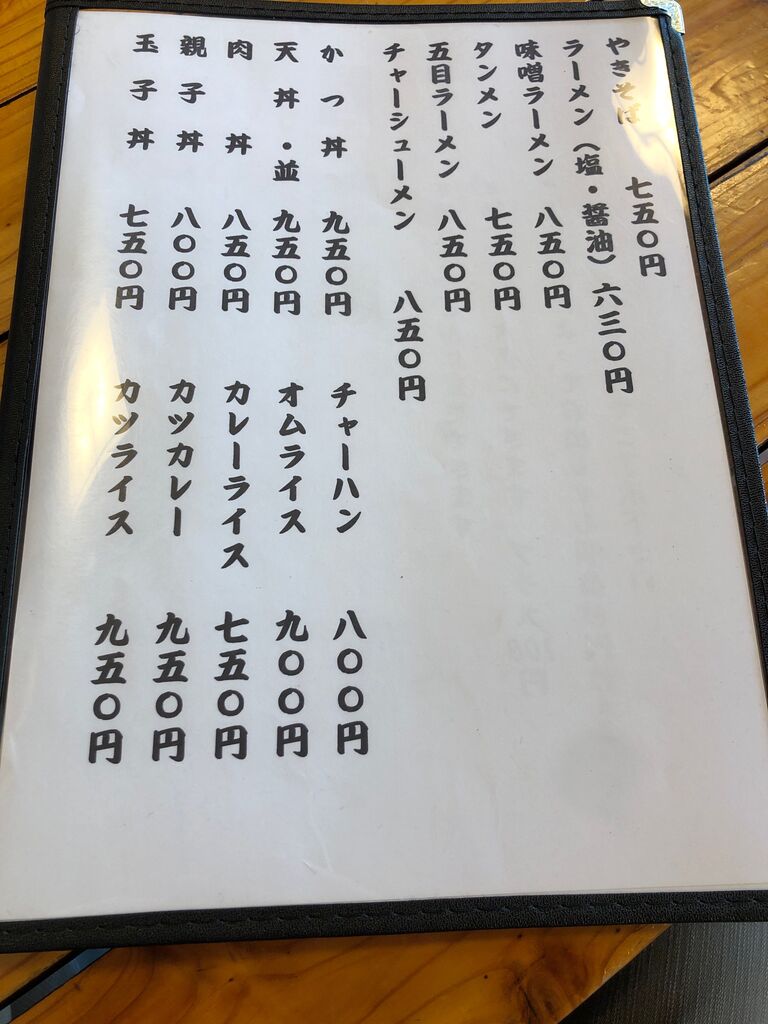 やきそば 七五〇円
ラーメン（塩・醤油）六三〇円
味噌ラーメン 八五〇円
タンメン 七五〇円
五目ラーメン 八五〇円
チャーシューメン 八五〇円
かつ丼 九五〇円
天丼・並 九五〇円
肉丼 八五〇円
親子丼 八〇〇円
玉子丼 七五〇円
チャーハン 八〇〇円
オムライス 九〇〇円
カレーライス 七五〇円
カツカレー 九五〇円
カツライス 九五〇円